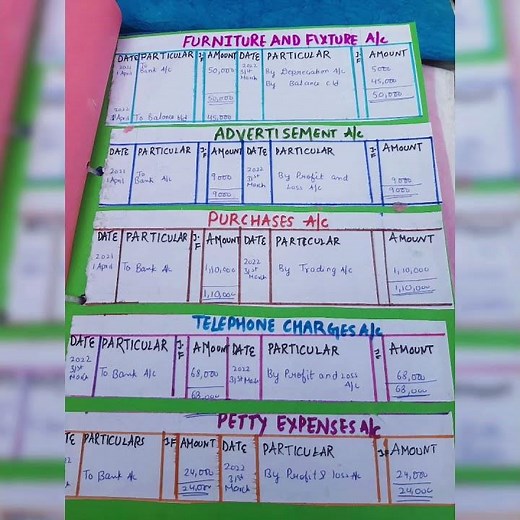 FURNITURE AND FIXTURE A/c
DATE PARTICULAR J.F AMOUNT DATE PARTICULAR J.F AMOUNT
2021 To 2022 5000
1 April Bank A/c 50,000 31st By Depreciation A/c 45,000
March By Balance c/d
50,000 50,000
2022
1 April To balance b/d 45,000
ADVERTISEMENT A/c
DATE PARTICULAR J.F AMOUNT DATE PARTICULAR J.F AMOUNT
2021 To 2022
1 April Bank A/c 9000 31st By Profit and 9000
9000 March Loss A/c 9000
PURCHASES A/c
DATE PARTICULAR J.F AMOUNT DATE PARTICULAR AMOUNT
2021 2022
1 April To Bank A/c 1,10,000 31st By Trading A/c 1,10,000
March
1,10,000 1,10,000
TELEPHONE CHARGES A/c
DATE PARTICULAR J.F AMOUNT DATE PARTICULAR J.F AMOUNT
2022 2022
31st To Bank A/c 68,000 31st March By Profit and Loss 68,000
March A/c
68,000 68,000
PETTY EXPENSES A/c
TE PARTICULARS J.F AMOUNT DATE PARTICULAR J.F AMOUNT
To Bank A/c 24,000 2022 By Profit & loss A/c 24,000
24,000 31st 24,000
March